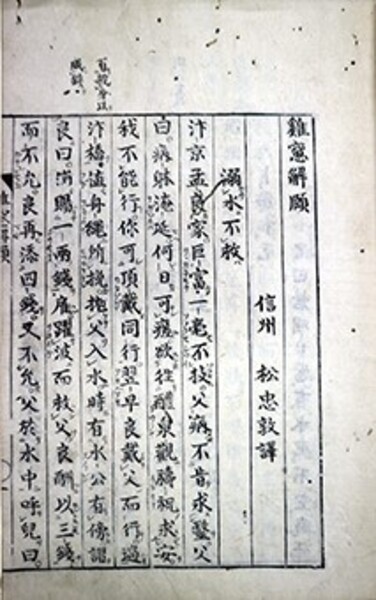 雞窓解頤
信州 松忠敦譯
溺水不救
汴京孟良家巨富一毫不拔父病不肯求醫父
曰病躰淹延何日可痊欲往醴泉觀禱祝求安
我不能行你可頂戴同行翌早良戴父而行過
汴橋值舟繩所挽拖父入水時有水公在傍謂
良曰消賜一兩錢雇躍波而救父良酬以三錢
而不允良再添四錢又不允父於水中呼兒曰